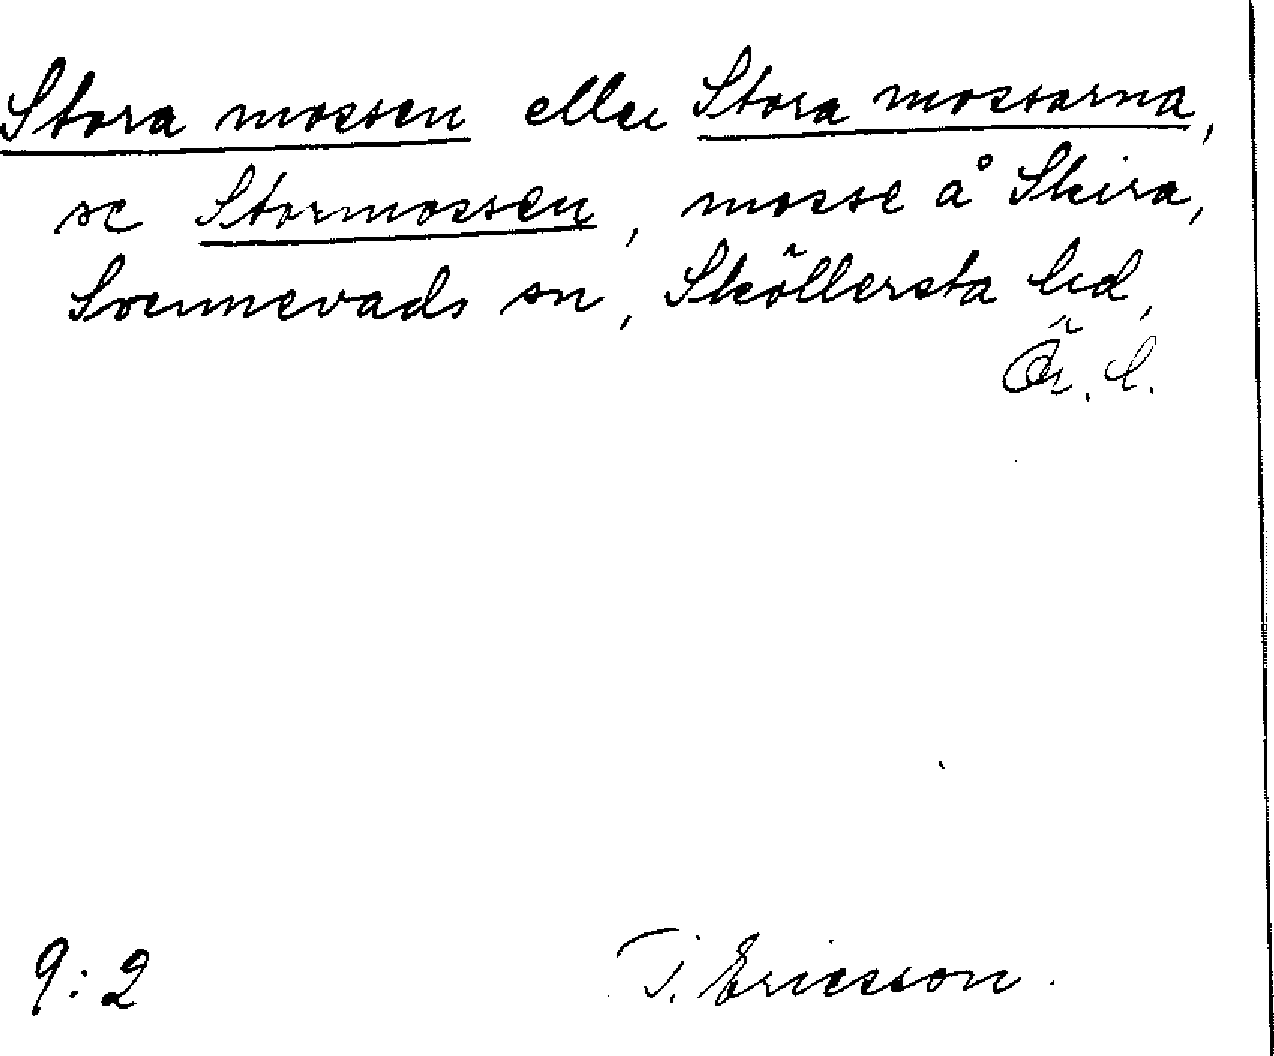 Stora mossen eller Stora mossarna,
se Stormossen, mosse å Skira,
Svennevads sn, Sköllersta hd,
Ör. l.
9:2 T. Ericsson.